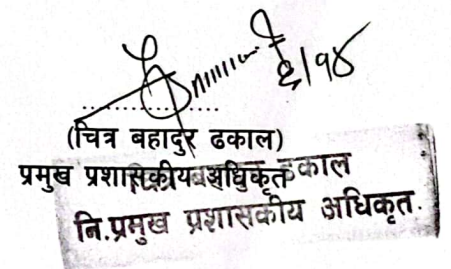 ६/१४
(चित्र बहादुर ढकाल)
प्रमुख प्रशासकीय अधिकृत
ढकाल
नि.प्रमुख प्रशासकीय अधिकृत.